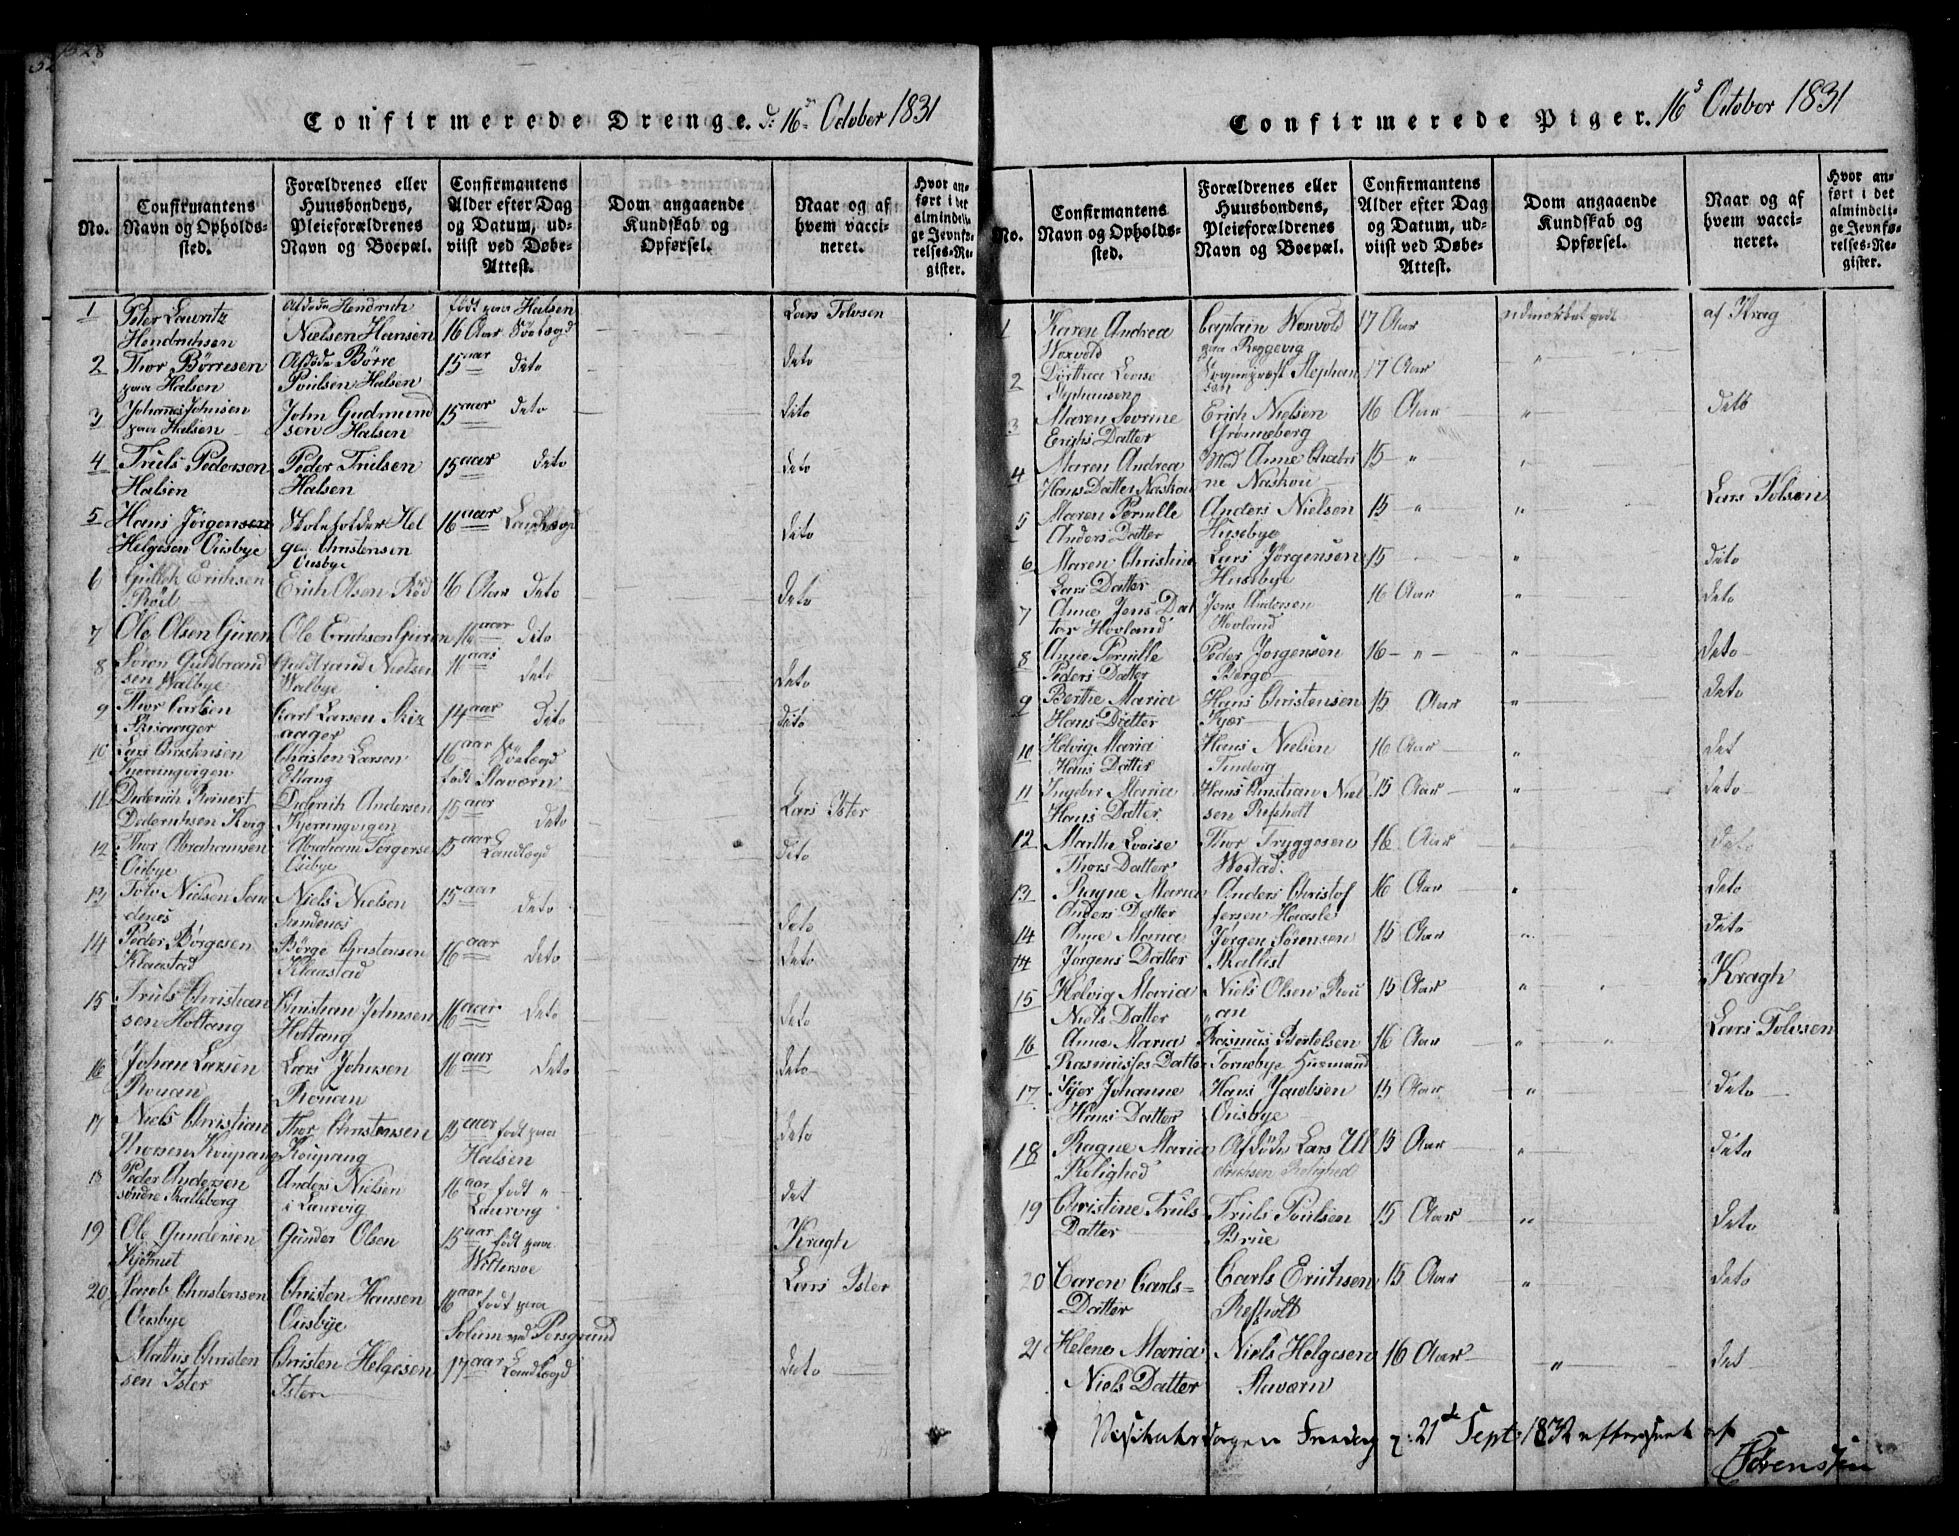 Confirmerede Drenge. d: 16d October 1831
No.
Confirmantens Navn og Opholdssted.
Forældrenes eller Huusbondens, Pleieforældrenes Navn og Boepæl.
Confirmantens Alder efter Dag og Datum, udviist ved Døbe-Attest.
Dom angaaende Kundskab og Opførsel.
Naar og af hvem vaccineret.
Hvor anført i det almindelige Jevnførelses-Register.
1 Peter Lauritz Hendrichsen Afdøde Hendrich Nielsen Hansen født paa Halsen 16 Aar Lars Tolvsen
2 Thor Börresen paa Halsen Afdøde Börre Poulsen Halsen 15 aar dito deto
3 Johannes Johnsen paa Halsen John Gudmundsen Halsen 15 aar deto dito
4 Truls Pedersen Halsen Peder Trulsen Halsen 15 aar dito deto
5 Hans Jörgensen Helgesen Ousbye Skoleholder Helge Christensen Ousbye 16 aar dito
6 Erichsen Röd Erich Olsen Röd 16 Aar deto deto
7 Ole Olsen Guren Ole Erichsen Guren 16 aar dito
8 Sören Guldbrandsen Walbye Guldbrand Nielsen Walbye 16 aar deto deto
9 Thor Carlsen Skisaager Carl Larsen Skizaager 14 aar dito dito
10 Lars Christensen Kjerringvigen Christen Larsen Eftang 16 aar født Stavern
11 Diderich Reinert Dederichsen Diderich Andersen Kjerringvigen 15 aar deto Lars Ister
12 Thor Abrahamsen Ousbye Abraham Torgerse Ousbye 15 aar Landlægd dito
13 Tolv Nielsen Sandenes Niels Nielsen Sundenes 15 aar deto deto
14 Peder Börgesen Klaastad Börge Christensen Klaastad 16 aar deto deto
15 Truls Christiansen Holtang Christian Johnsen Holtang 16 aar deto deto
16 Johan Larsen Rouan Lars Johnsen Rouan 16 aar deto deto
17 Niels Christian Thorsen Koupang Thor Christensen Koupang 15 aar født paa Halsen deto
18 Peder Andersen söndre Skalleberg Anders Nielsen i Laurvig 16 aar født Laurvig det
19 Ole Gundersen Gunder Olsen 15 aar født paa Kragh
20 Jacob Christensen Ousbye Christen Hansen Ousbye 16 aar født paa Solum ved Porsgrund Lars Ister
Mathis Christensen Ister Christen Helgesen Ister 17 aar Landlægd deto
Confirmerede Piger. 16d October 1831
No.
Confirmantens Navn og Opholdssted.
Forældrenes eller Huusbondens, Pleieforældrenes Navn og Boepæl.
Confirmantens Alder efter Dag og Datum, udviist ved Døbe-Attest.
Dom angaaende Kundskab og Opførsel.
Naar og af hvem vaccineret.
Hvor anført i det almindelige Jevnførelses-Register.
1 Karen Andrea Woxvold Captain Woxvold paa Roggevig 17 Aar af Krag
2 Dorthea Lovise Stephansen Sognepræst Stephansen 17 Aar
3 Maren Severine Erichs Datter Erich Nielsen Grønneberg 16 Aar dito
4 Maren Andrea Hans Datter Naskou Mad Anne Chatrine Naskou 15 Lars Tolsen
5 Maren Pernille Anders Datter Anders Nielsen Husebye 15
6 Maren Christine Lars Datter Lars Jörgensen Husebye 15 dito
7 Anne Jens Datter Hovland Jens Andersen Hovland 16 Aar deto
8 Anne Pernille Peders Datter Peder Jørgensen Berge 16 deto
9 Berthe Maria Hans Datter Hans Christensen Kjær 15 Aar deto
10 Helvig Maria Hans Datter Hans Nielsen Tindvig 16 Aar det
11 Ingebor Maria Hans Datter Hans Christian Nielsen Refsholt 15 Aar deto
12 Marthe Lovise Thors Datter Thor Tryggesen Westad 16 Aar deto
13 Ragne Maria Anders Datter Anders Christofersen Haasle 16 Aar deto
14 Anne Maria Jørgens Datter Jørgen Sørensen Skallist 15 Aar deto
15 Helvig Maria Niels Datter Niels Olsen Rouan 15 Aar Kragh
16 Anne Maria Rasmuses Datter Rasmus Bertelsen Tornebye Husmand 16 Aar Lars Tolvsen
17 Kjer Johanne Hans Datter Hans Jacobsen Ousbye 15 Aar deto
18 Ragne Maria Rolighed Afdøde Lars Ulerichsen Rolighed 15 Aar dito
19 Christine Truls Datter Truls Poulsen Brue 15 Aar deto
20 Caren Carls-Datter Carls Erichsen Refsholt 15 Aar deto
21 Helene Maria Niels Datter Niels Helgesen Stavern 16 Aar det
Visitatsdagen Fredag d: 21de Sept: 1832 efterseet af
Sørenssen